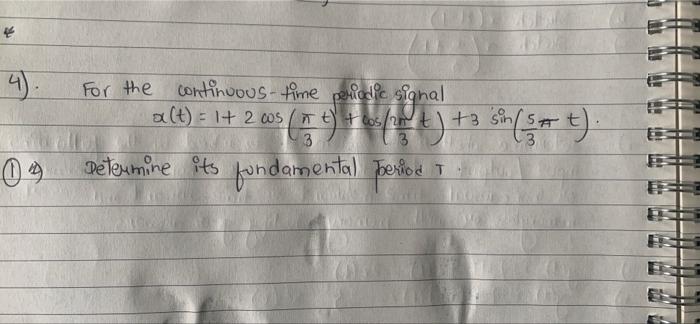 4). For the continuous-time periodic signal
x(t) = 1 + 2 cos (π/3 t) + cos (2π/3 t) + 3 sin (5π/3 t).
① Determine its fundamental period T.